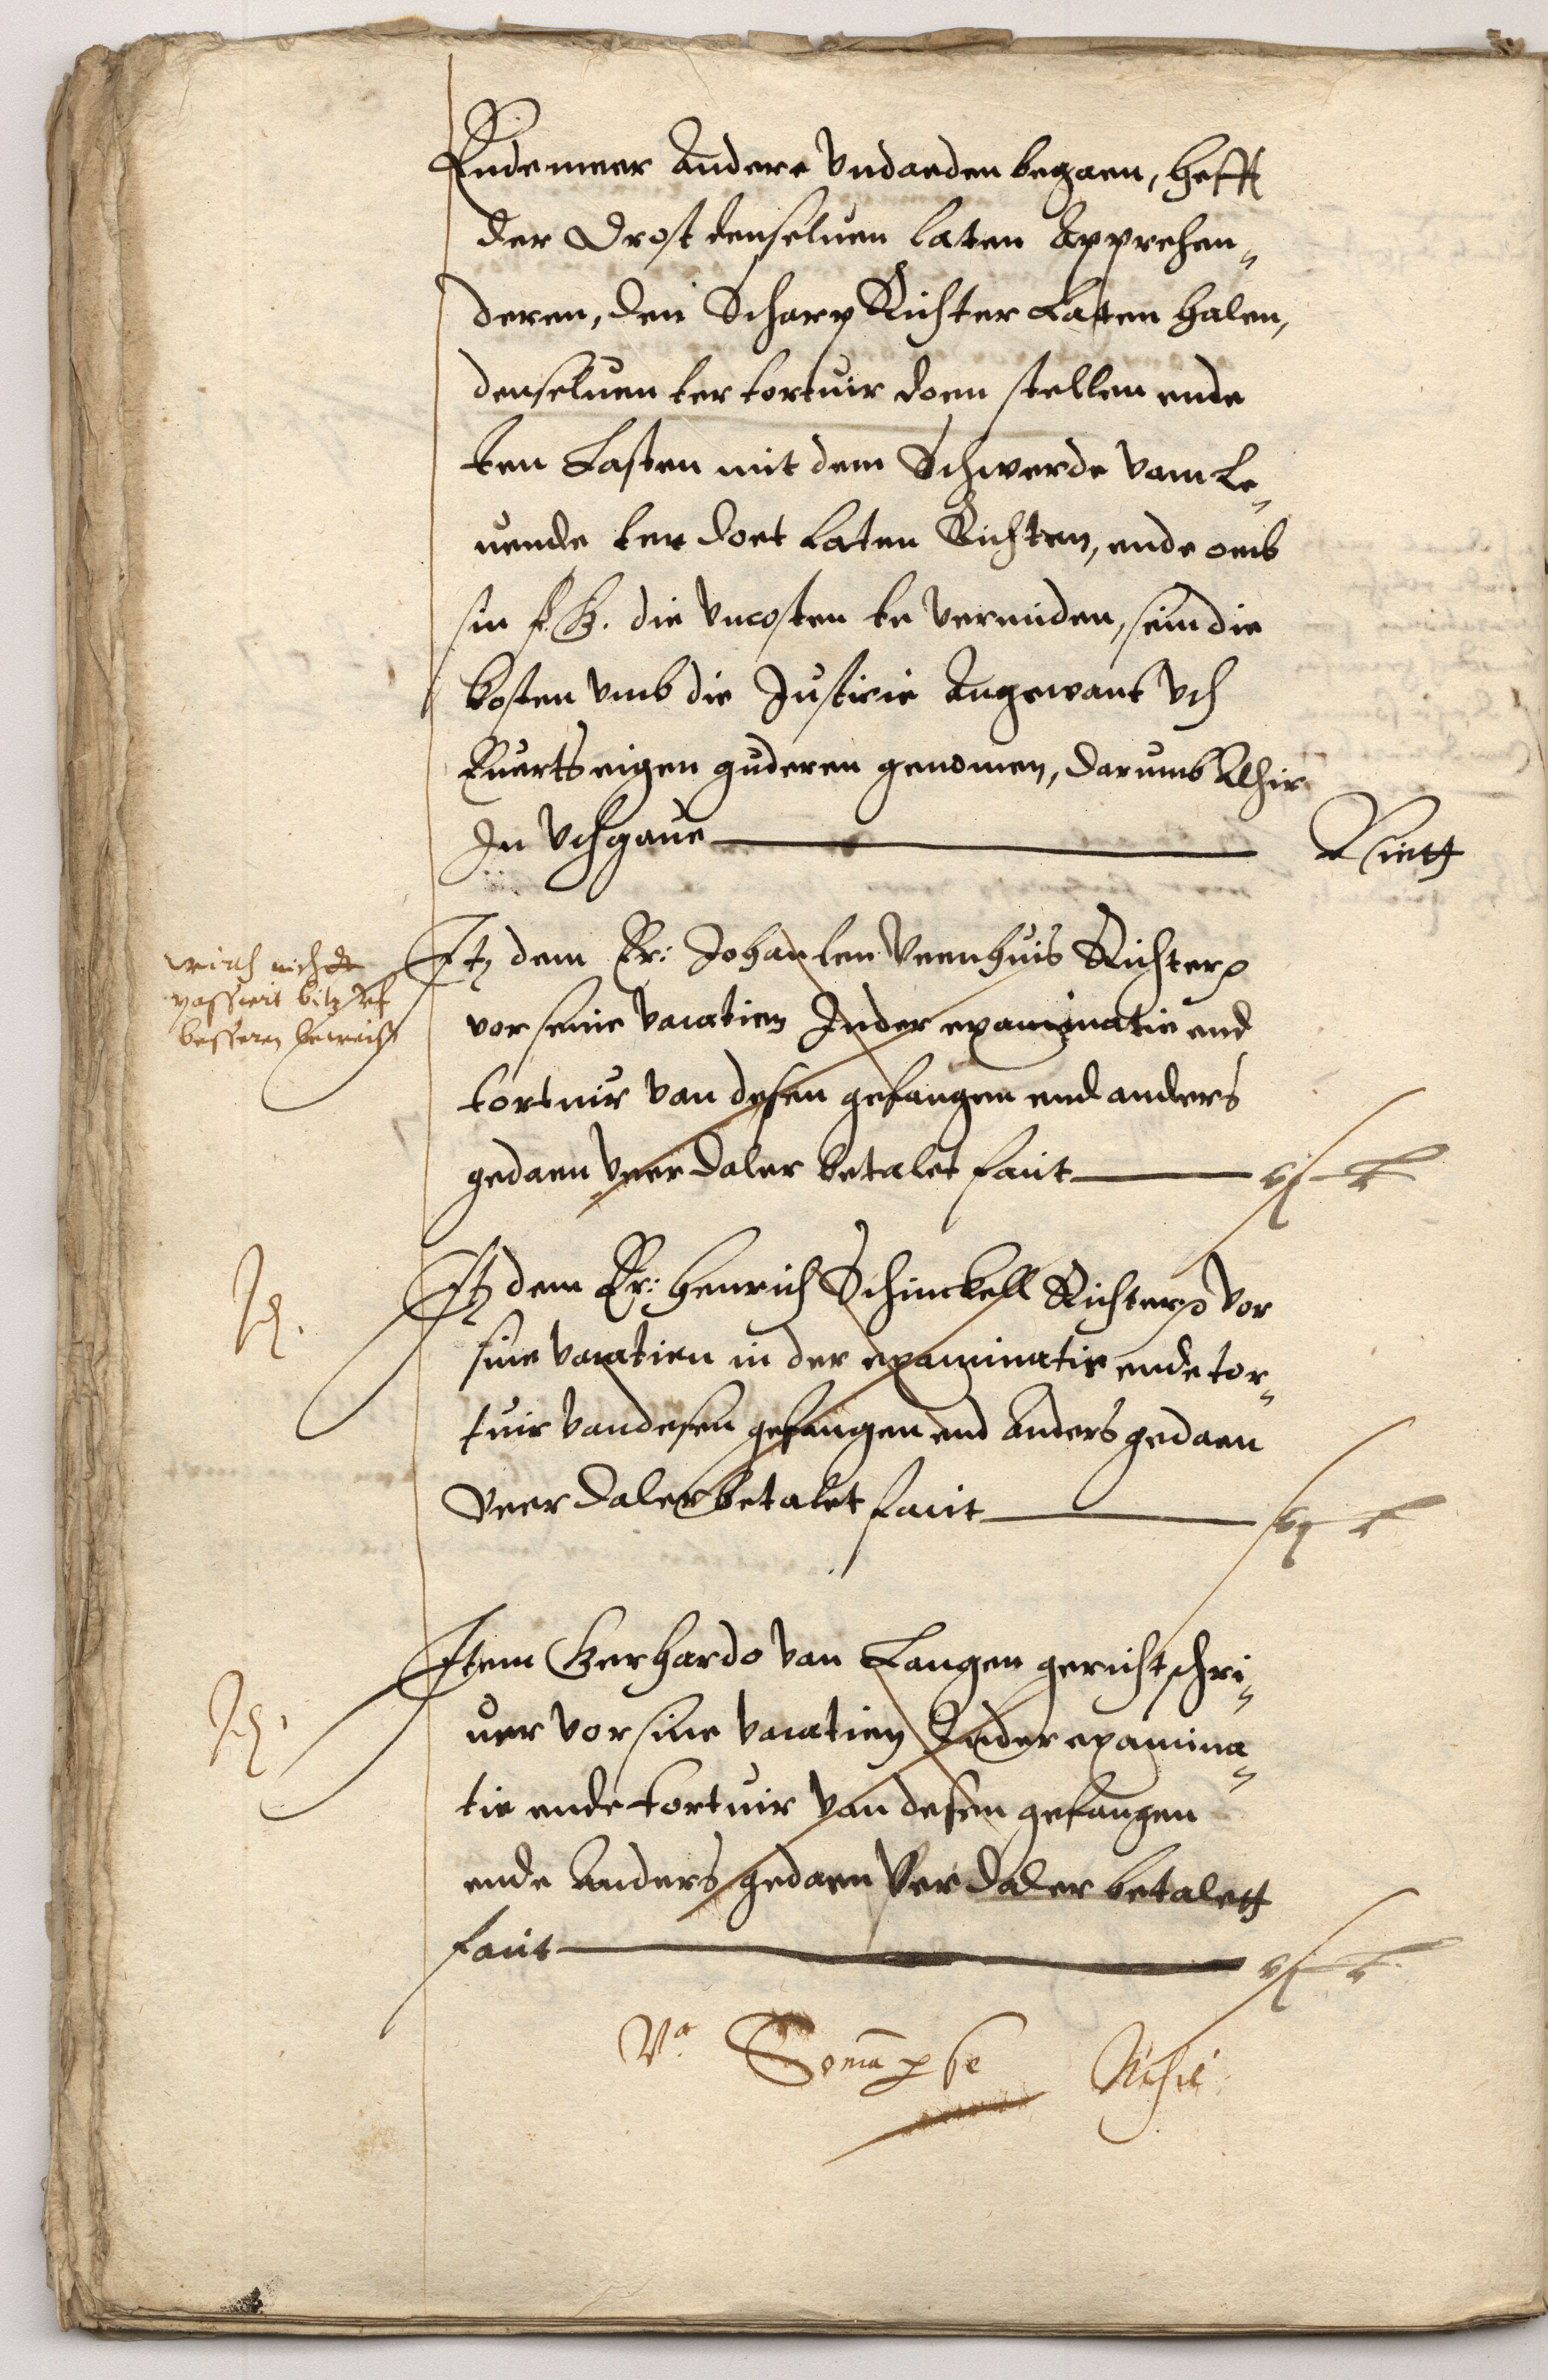 Ende meer Andere vndaeden begaen, hefft
der Drost denseluen laten Apprehen„
deren, den Scharp Richter Laten halen,
denseluen ter tortuir doen stellen ende
ten Lasten mit dem Schwerde vam Le„
uende ter doet Laten Richten, ende omb
sin f. G. die vncosten te vermiden, sein die
kosten vmb die Justicie Angewant vth
Euerts eigen guderen genomen, darumb Alhir
In vthgaue Niett
wirth nicht
passirt bitz vf
besseren beweiss
Itz dem Er: Johan ten Veenhuis Richter
vor seine vacatien Inder examinatie end
tortuir van desen gefangen end anders
gedaen veer daler betalet facit vj
Id.
Itz dem Er: Henrich Schinckell Richter vor
sine vacatien in der examinatie ende tor„
tuir van desen gefangen end Anders gedaen
Veer daler betalet facit vj
Id.
Item Gerhardo van Langen gerichtschri„
uer vor sine vacatien Inder examina„
tie ende tortuir van desen gefangen
ende Anders gedaen Veer daler betalett
facit vj
Soma p se Nihil